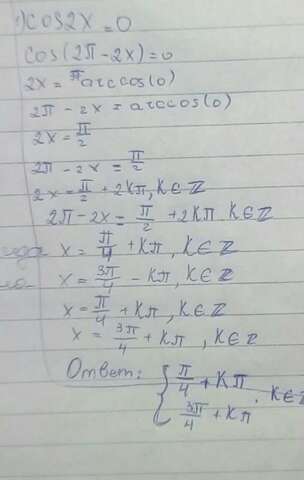 1) cos2x=0
cos(2π-2x)=0
2x= arccos(0)
2π-2x=arccos(0)
2x=π/2
2π-2x=π/2
2x=π/2+2Kπ, K∈Z
2π-2x=π/2+2Kπ K∈Z
x=π/4+Kπ, K∈Z
x=3π/4-Kπ, K∈Z
x=π/4+Kπ, K∈Z
x=3π/4+Kπ, K∈Z
Ответ: { π/4+Kπ
3π/4+Kπ . K∈Z